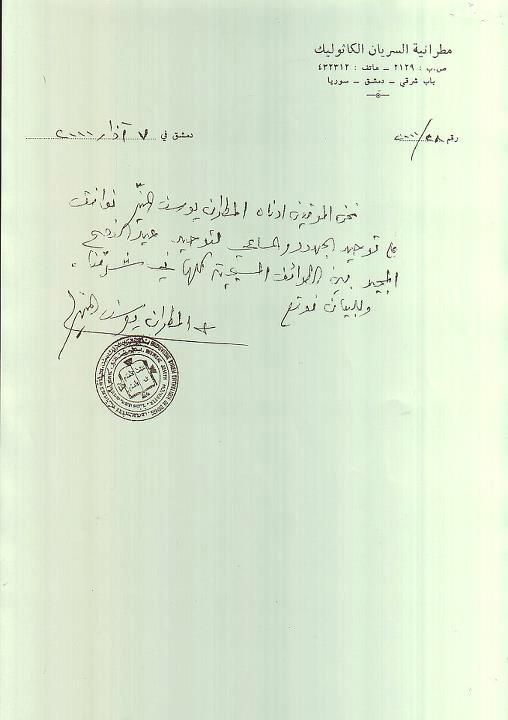 مطرانية السريان الكاثوليك
ص.ب : ٢١٢٩ – هاتف : ٤٣٢٣١٢
باب شرقي – دمشق – سوريا
رقم
دمشق في ٧ آذار ٢٠٠٠
نحن الموقعين ادناه المطران يوسف المنيّر نوافق
على توحيد الجهود والمساعي لتوحيد عيد الفصح
المجيد بين الطوائف المسيحية كلها في شرقنا .
وللبيان نوقع
+ المطران يوسف المنيّر